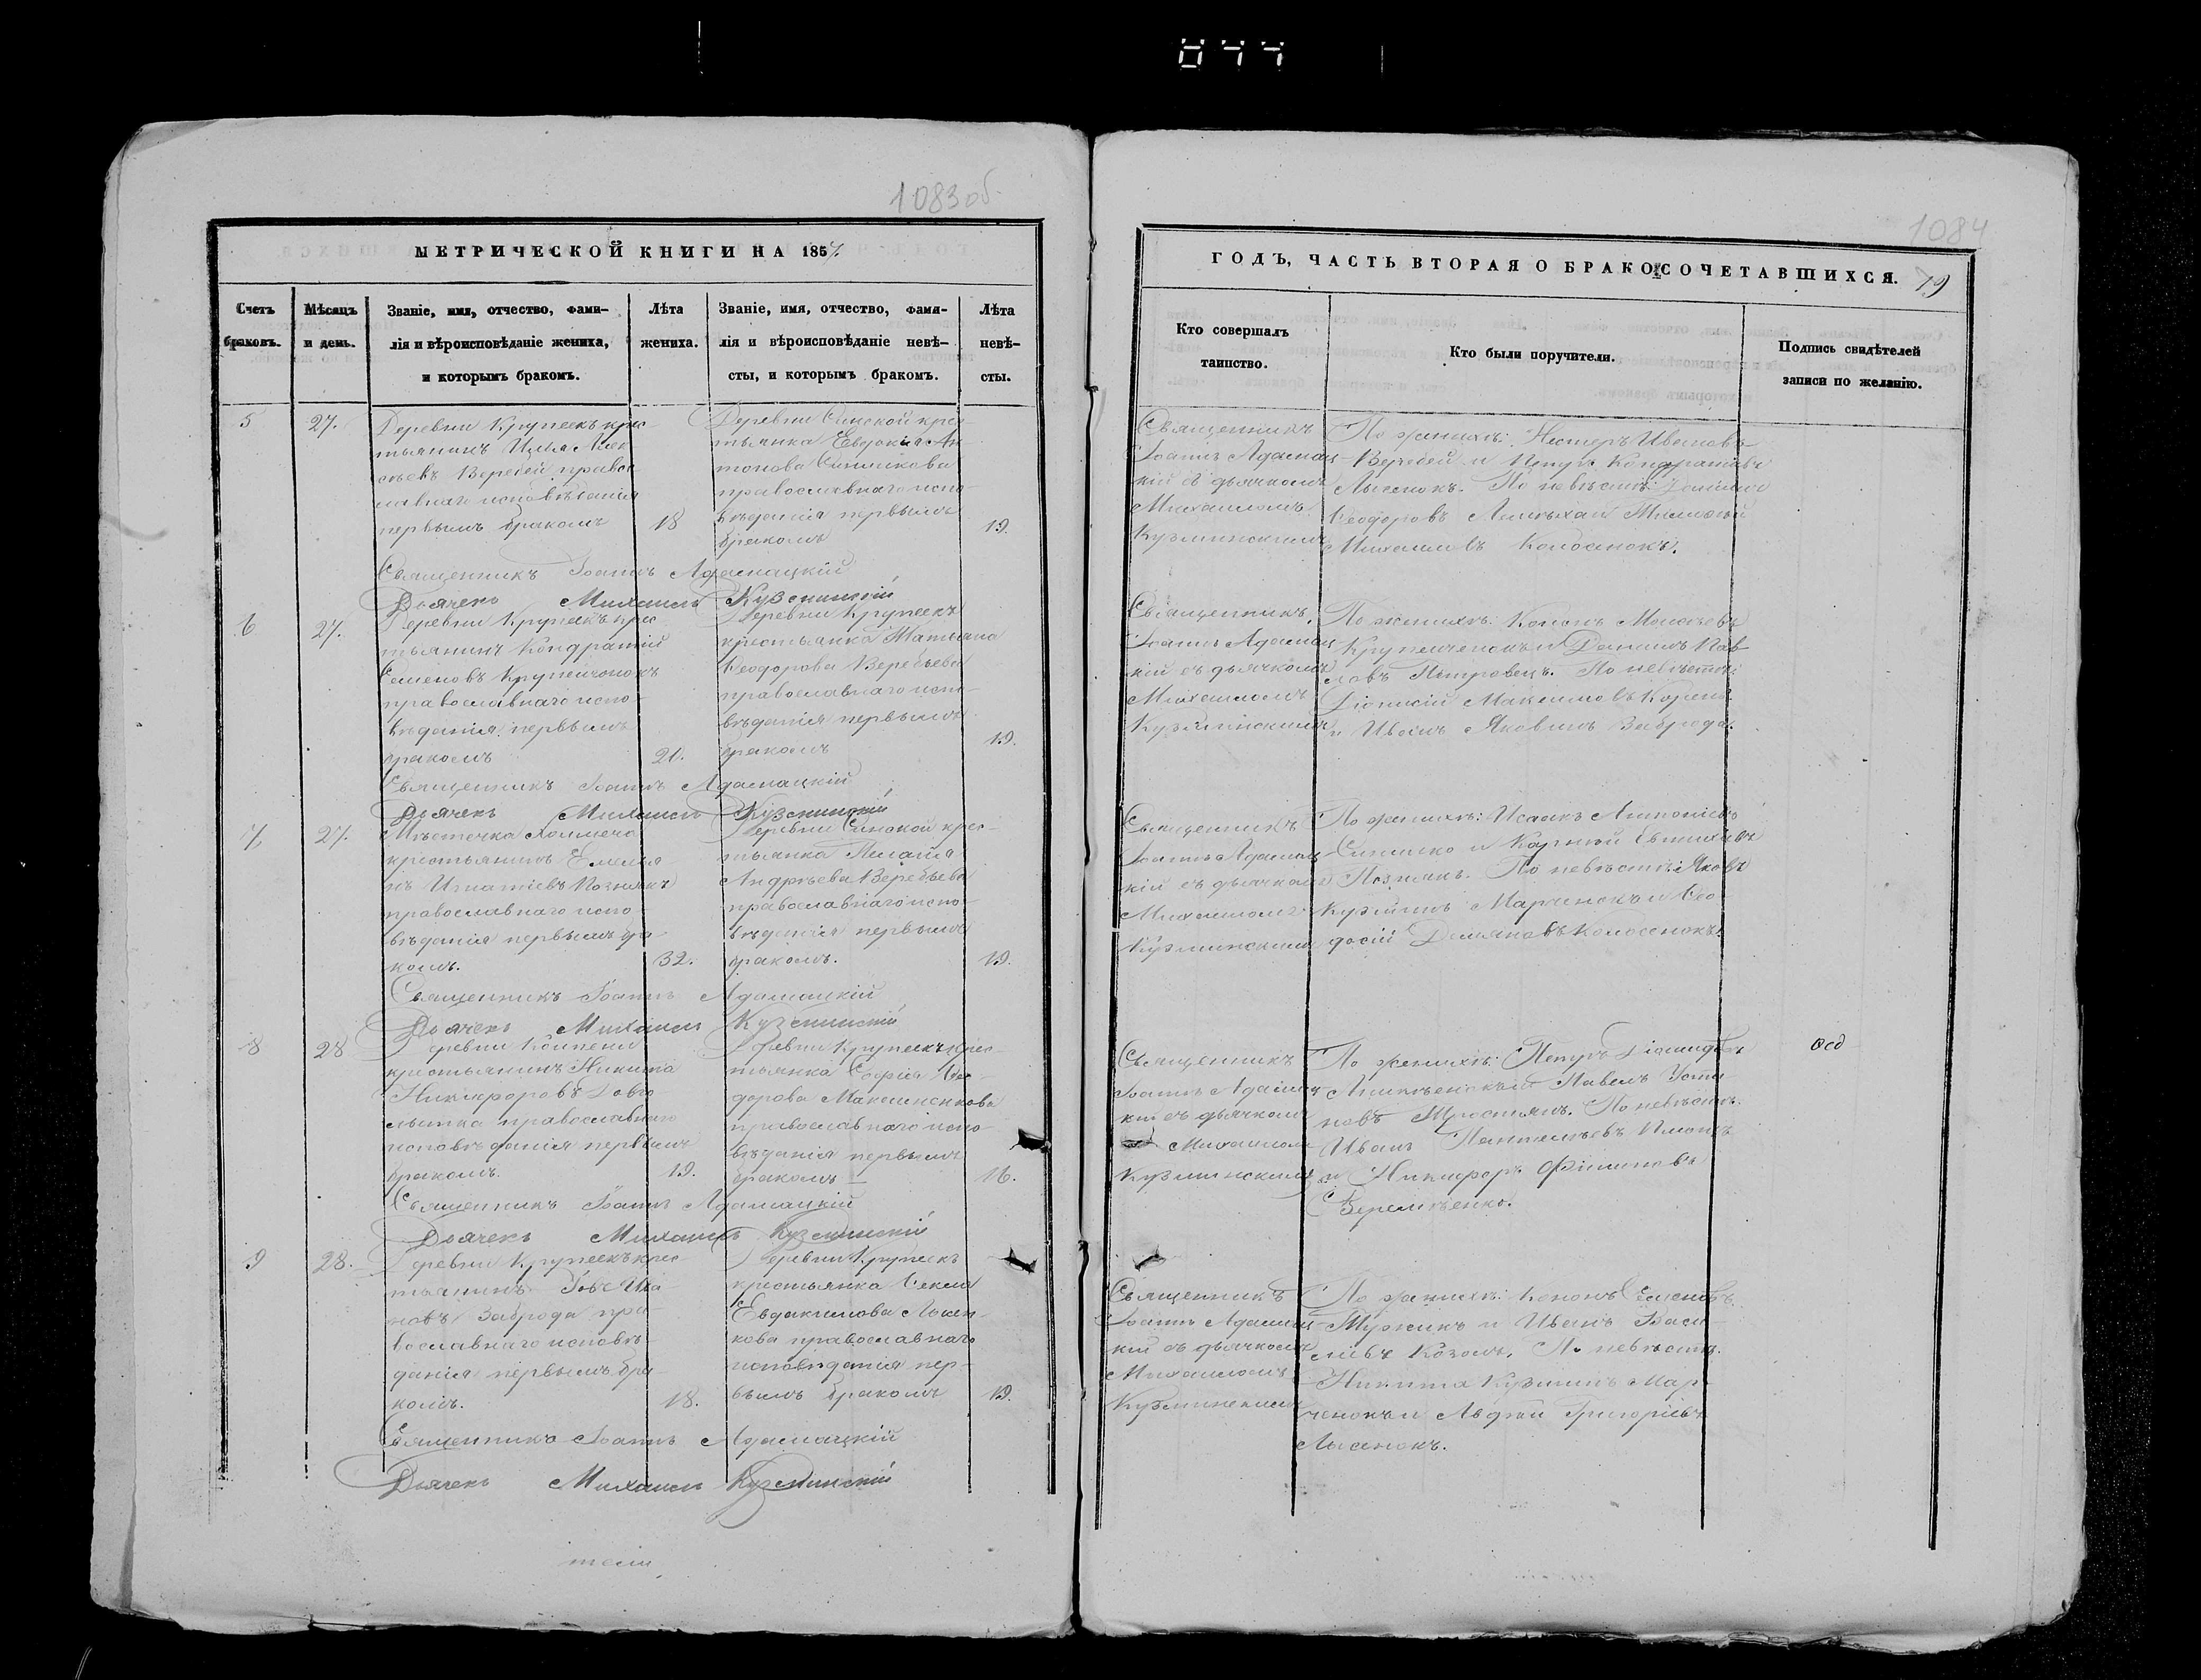 077
1083об
МЕТРИЧЕСКОЙ КНИГИ НА 1857.
Счетъ браковъ.
Мѣсяцъ и день.
Званіе, имя, отчество, фами-
лія и вѣроисповѣданіе жениха,
и которымъ бракомъ.
Лѣта
жениха.
Званіе, имя, отчество, фами-
лія и вѣроисповѣданіе невѣ-
сты, и которымъ бракомъ.
Лѣта
невѣ-
сты.
5
27.
Деревни Крупеекъ крес-
тьянинъ Илья Алек
сѣевъ Веребей правос
лавнаго исповѣданія
первымъ бракомъ
18
Деревни Синской крес-
тьянка Евдокия Ан
тонова Синилкова
православнаго испо-
вѣданія первымъ
бракомъ
19.
Священникъ Іоаннъ Адамацкій
Дьячекъ Михаилъ Кузминскій
6
27.
Деревни Крупеекъ крес
тьянинъ Кондратій
Семеновъ Крупейчонокъ
православнаго испо-
вѣданія первымъ
бракомъ
21.
Деревни Крупеекъ
крестьянка Татьяна
Ѳеодорова Веребьева
православнаго испо-
вѣданія первымъ
бракомъ
19.
Священникъ Іоаннъ Адамацкій
Дьячекъ Михаилъ Кузминскій
7
27.
Мѣстечка Холмеча
крестьянинъ Емелья
нъ Игнатіевъ Познякъ
православнаго испо
вѣданія первымъ бра-
комъ.
32.
Деревни Синской крес-
тьянка Пелагія
Андрѣева Веребьева
православнаго испо-
вѣданія первымъ
бракомъ.
19.
Священникъ Іоаннъ Адамацкій
Дьячекъ Михаилъ Кузминскій
8
28
Деревни
крестьянинъ Никита
Никифоровъ Довго-
православнаго
исповѣданія первымъ
бракомъ.
19.
Деревни Крупеекъ крес-
тьянка Софія Ѳео-
дорова Максименкова
православнаго испо-
вѣданія первымъ
бракомъ
16.
Священникъ Іоаннъ Адамацкій
Дьячекъ Михаилъ Кузминскій
9
28.
Деревни Крупеекъ крес
тьянинъ Іовъ Ива
новъ Заброда пра-
вославнаго исповѣ-
данія первымъ бра
комъ.
18.
Деревни Крупеекъ
крестьянка Ѳекла
Евдакимова Лысен-
кова православнаго
исповѣданія пер-
вымъ бракомъ
19.
Священникъ Іоаннъ Адамацкій
Дьячекъ Михаилъ Кузминскій
1084
ГОДЪ, ЧАСТЬ ВТОРАЯ О БРАКОСОЧЕТАВШИХСЯ.
79
Кто совершалъ
таинство.
Кто были поручители.
Подпись свидѣтелей
записи по желанію.
Священникъ
Іоаннъ Адамац
кій съ дьячкомъ
Михаиломъ
Кузминскимъ
По женихѣ: Нестеръ Ивановъ
Веребей и Петръ Кондратіевъ
Лысенокъ. По невѣстѣ: Даніилъ
Ѳеодоровъ
Михаиловъ Колосенокъ.
Священникъ
Іоаннъ Адамац
кій съ дьячкомъ
Михаиломъ
Кузминскимъ
По женихѣ: Кононъ Моисѣевъ
Крупейченокъ и Даніилъ Пав-
ловъ Петровецъ. По невѣстѣ:
Діонисій Максимовъ Корень
и Иванъ Яковлевъ Заброда.
Священникъ
Іоаннъ Адамац
кій съ дьячкомъ
Михаиломъ
Кузминскимъ
По женихѣ: Исаакъ Антоніевъ
Синилко и Карній Евтихіевъ
Познякъ. По невѣстѣ: Яковъ
Кузминъ Марченокъ и Ѳео
досій Демяновъ Колосенокъ.
Священникъ
Іоаннъ Адамац
кій съ дьячкомъ
Михаиломъ
Кузминскимъ
По женихѣ: Петръ Діомидовъ
и Павелъ Усти
новъ Тростянъ. По невѣстѣ:
Иванъ Пантелѣевъ
и Никифоръ Филиповъ
Веремѣенко.
Священникъ
Іоаннъ Адамац
кій съ дьячкомъ
Михаиломъ
Кузминскимъ
По женихѣ: Кононъ Семеновъ
Мужикъ и Иванъ Васи
ліевъ Козелъ. По невѣстѣ:
Никита Кузминъ Мар-
ченокъ и Авдѣй Григоріевъ
Лысенокъ.